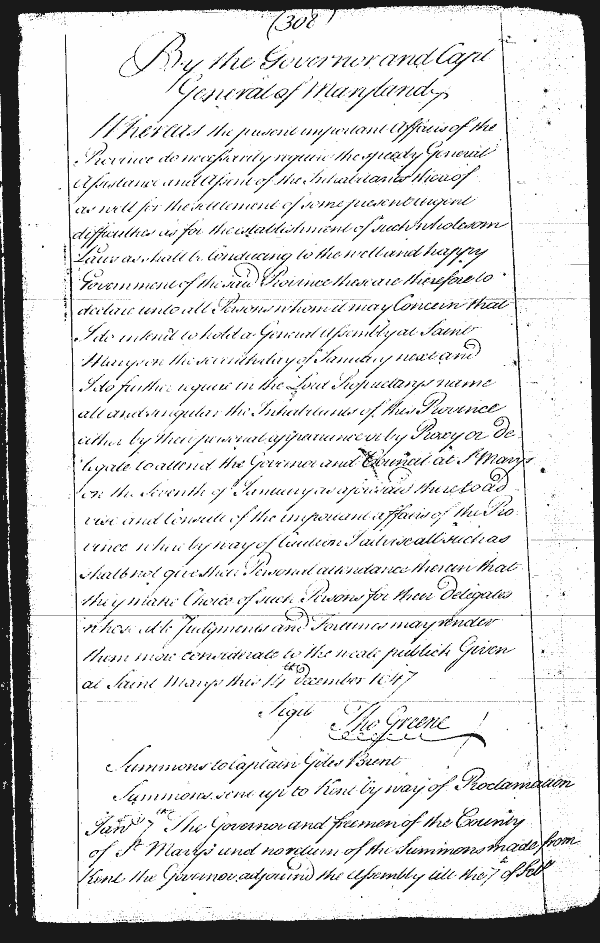 (308)
By the Governor and Capt
General of Maryland
Whereas the present important Affairs of the
Province do necessarily require the speedy General
Assistance and Assent of the Inhabitants thereof
as well for the settlement of some present urgent
difficulties as for the establishment of such wholesom
Laws as shall be Conduceing to the well and happy
Government of the said Province these are therefore to
declare unto all Persons whom it may Concern that
I do intend to hold a General Assembly at Saint
Marys on the seventh day of January next and
I do further require in the Lord Proprietarys name
all and singular the Inhabitants of this Province
either by their personal appearance or by Proxy or De
legate to attend the Governor and Council at St Marys
on the Seventh of January as aforesaid there to ad
vise and Consult of the important affairs of the Pro
vince where by way of Caution I advise all such as
shall not give their Personal attendance therein that
they make Choice of such Persons for their Delegates
whose able Judgments and Fortunes may render
them more considerate to the weale publick Given
at Saint Marys this 14th December 1647
Signed Tho Greene
Summons to Captain Giles Brent
Summons sent up to Kent by way of Proclamation
Janry 7th The Governor and freemen of the County
of St Marys and no return of the Summons made from
Kent the Governor adjourned the Assembly till the 7th of Feb